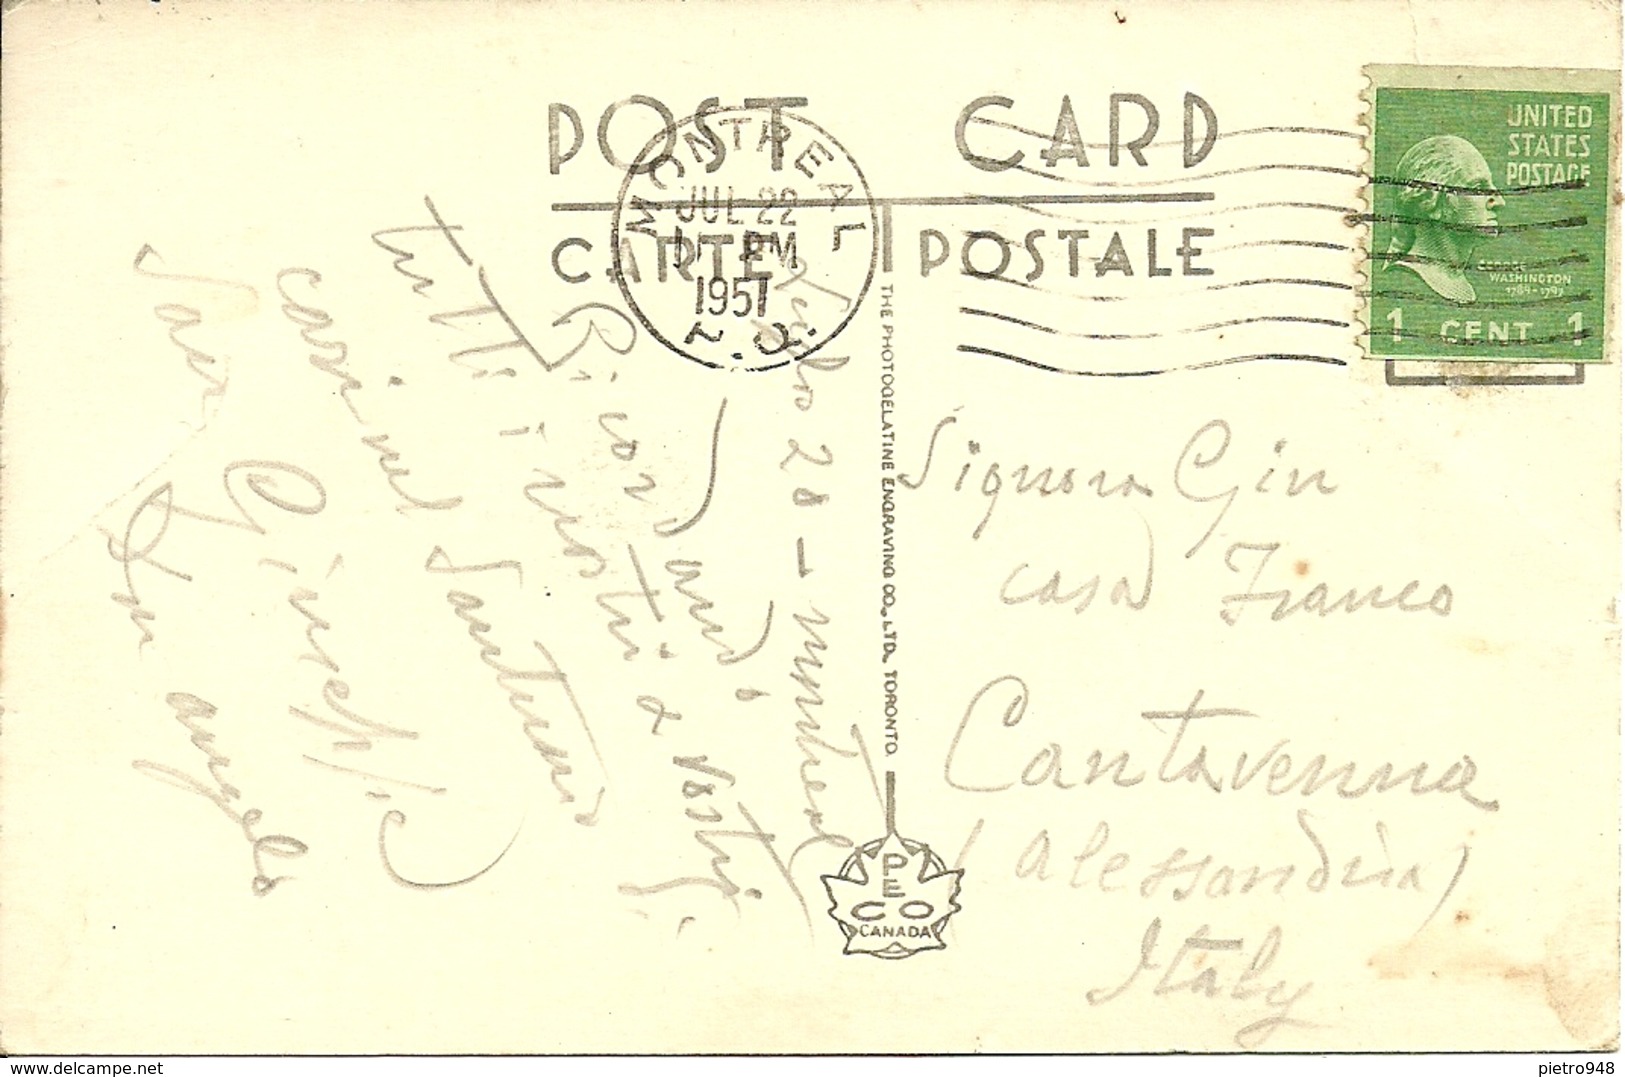 POST CARD
CARTE POSTALE
MONTREAL
JUL 22
PM
1951
P.Q.
UNITED
STATES
POSTAGE
GEORGE
WASHINGTON
1789-1797
1 CENT 1
THE PHOTOGELATINE ENGRAVING CO., LTD. TORONTO
PECO
CANADA
Luglio 20 - Montreal
Ricordando
tutti i vostri e vostri
cari nel Santuario
San Giuseppe
Don Angelo
Signora Gin
casa Franco
Cantavenna
(Alessandria)
Italy
www.delcampe.net
pietro948